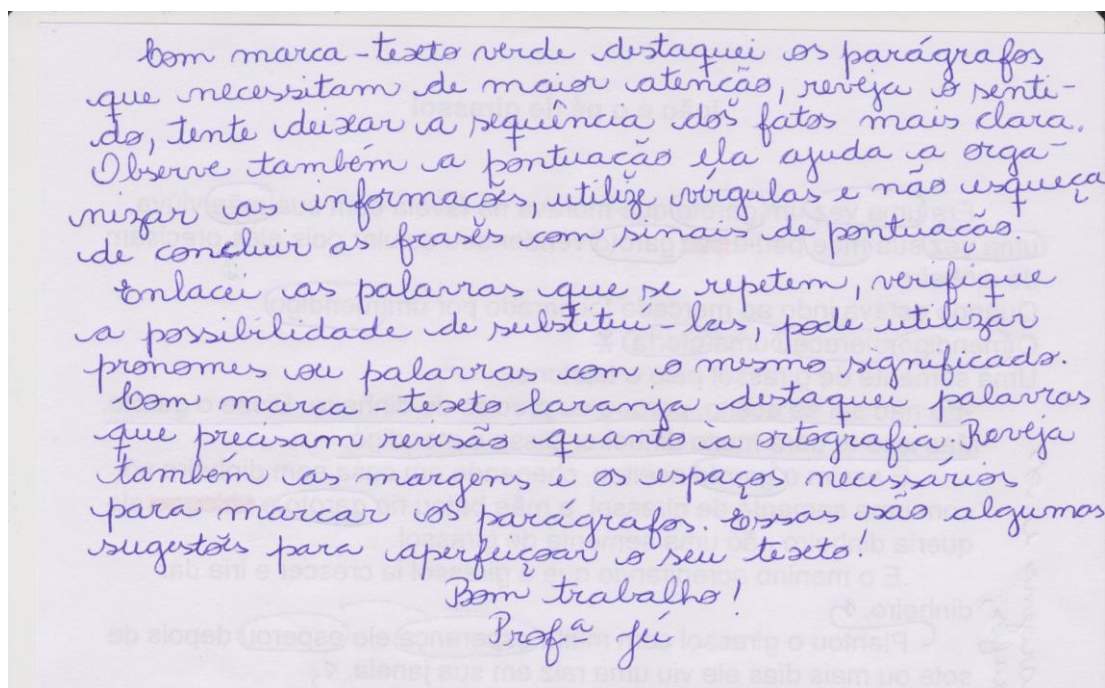 Com marca-texto verde destaquei os parágrafos
que necessitam de maior atenção, reveja o senti-
do, tente deixar a sequência dos fatos mais clara.
Observe também a pontuação ela ajuda a orga-
nizar as informações, utilize vírgulas e não esqueça
de concluir as frases com sinais de pontuação.
Enlacei as palavras que se repetem, verifique
a possibilidade de substitui-las, pode utilizar
pronomes ou palavras com o mesmo significado.
Com marca texto laranja destaquei palavras
que precisam revisão quanto à ortografia. Reveja
também as margens e os espaços necessários
para marcar os parágrafos. Essas são algumas
sugestões para aperfeiçoar o seu texto!
Bom trabalho!
Profª Jú